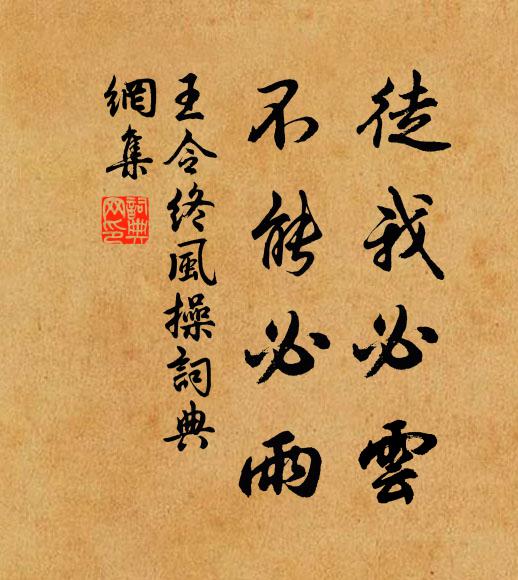 徒我必雲
不能必雨
王令終風操詞典
網集
詞典
网印